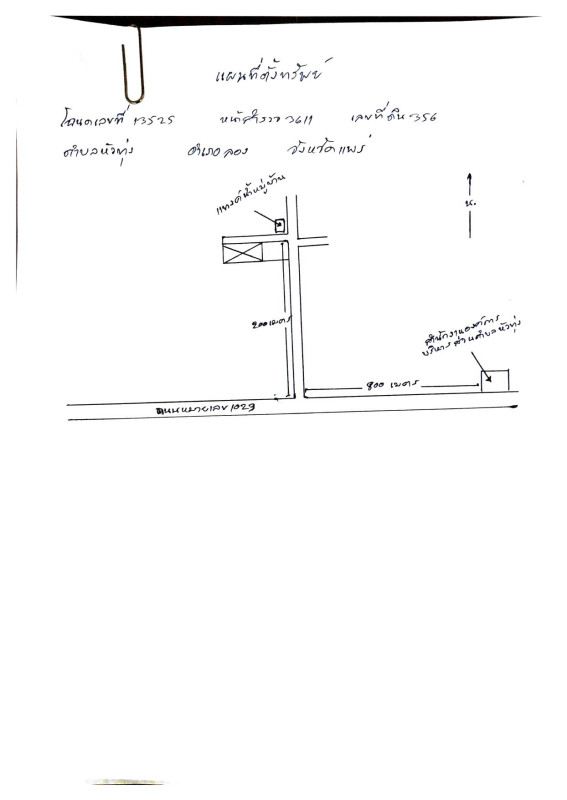 แผนที่ตั้งทรัพย์
โฉนดเลขที่ 13525 หน้าสำรวจ 3611 เลขที่ดิน 356
ตำบลหัวทุ่ง อำเภอ ลอง จังหวัด แพร่
แทงค์น้ำหมู่บ้าน
น.
200 เมตร
สำนักงานองค์การ
บริหารส่วนตำบลหัวทุ่ง
800 เมตร
ถนนหมายเลข 1023